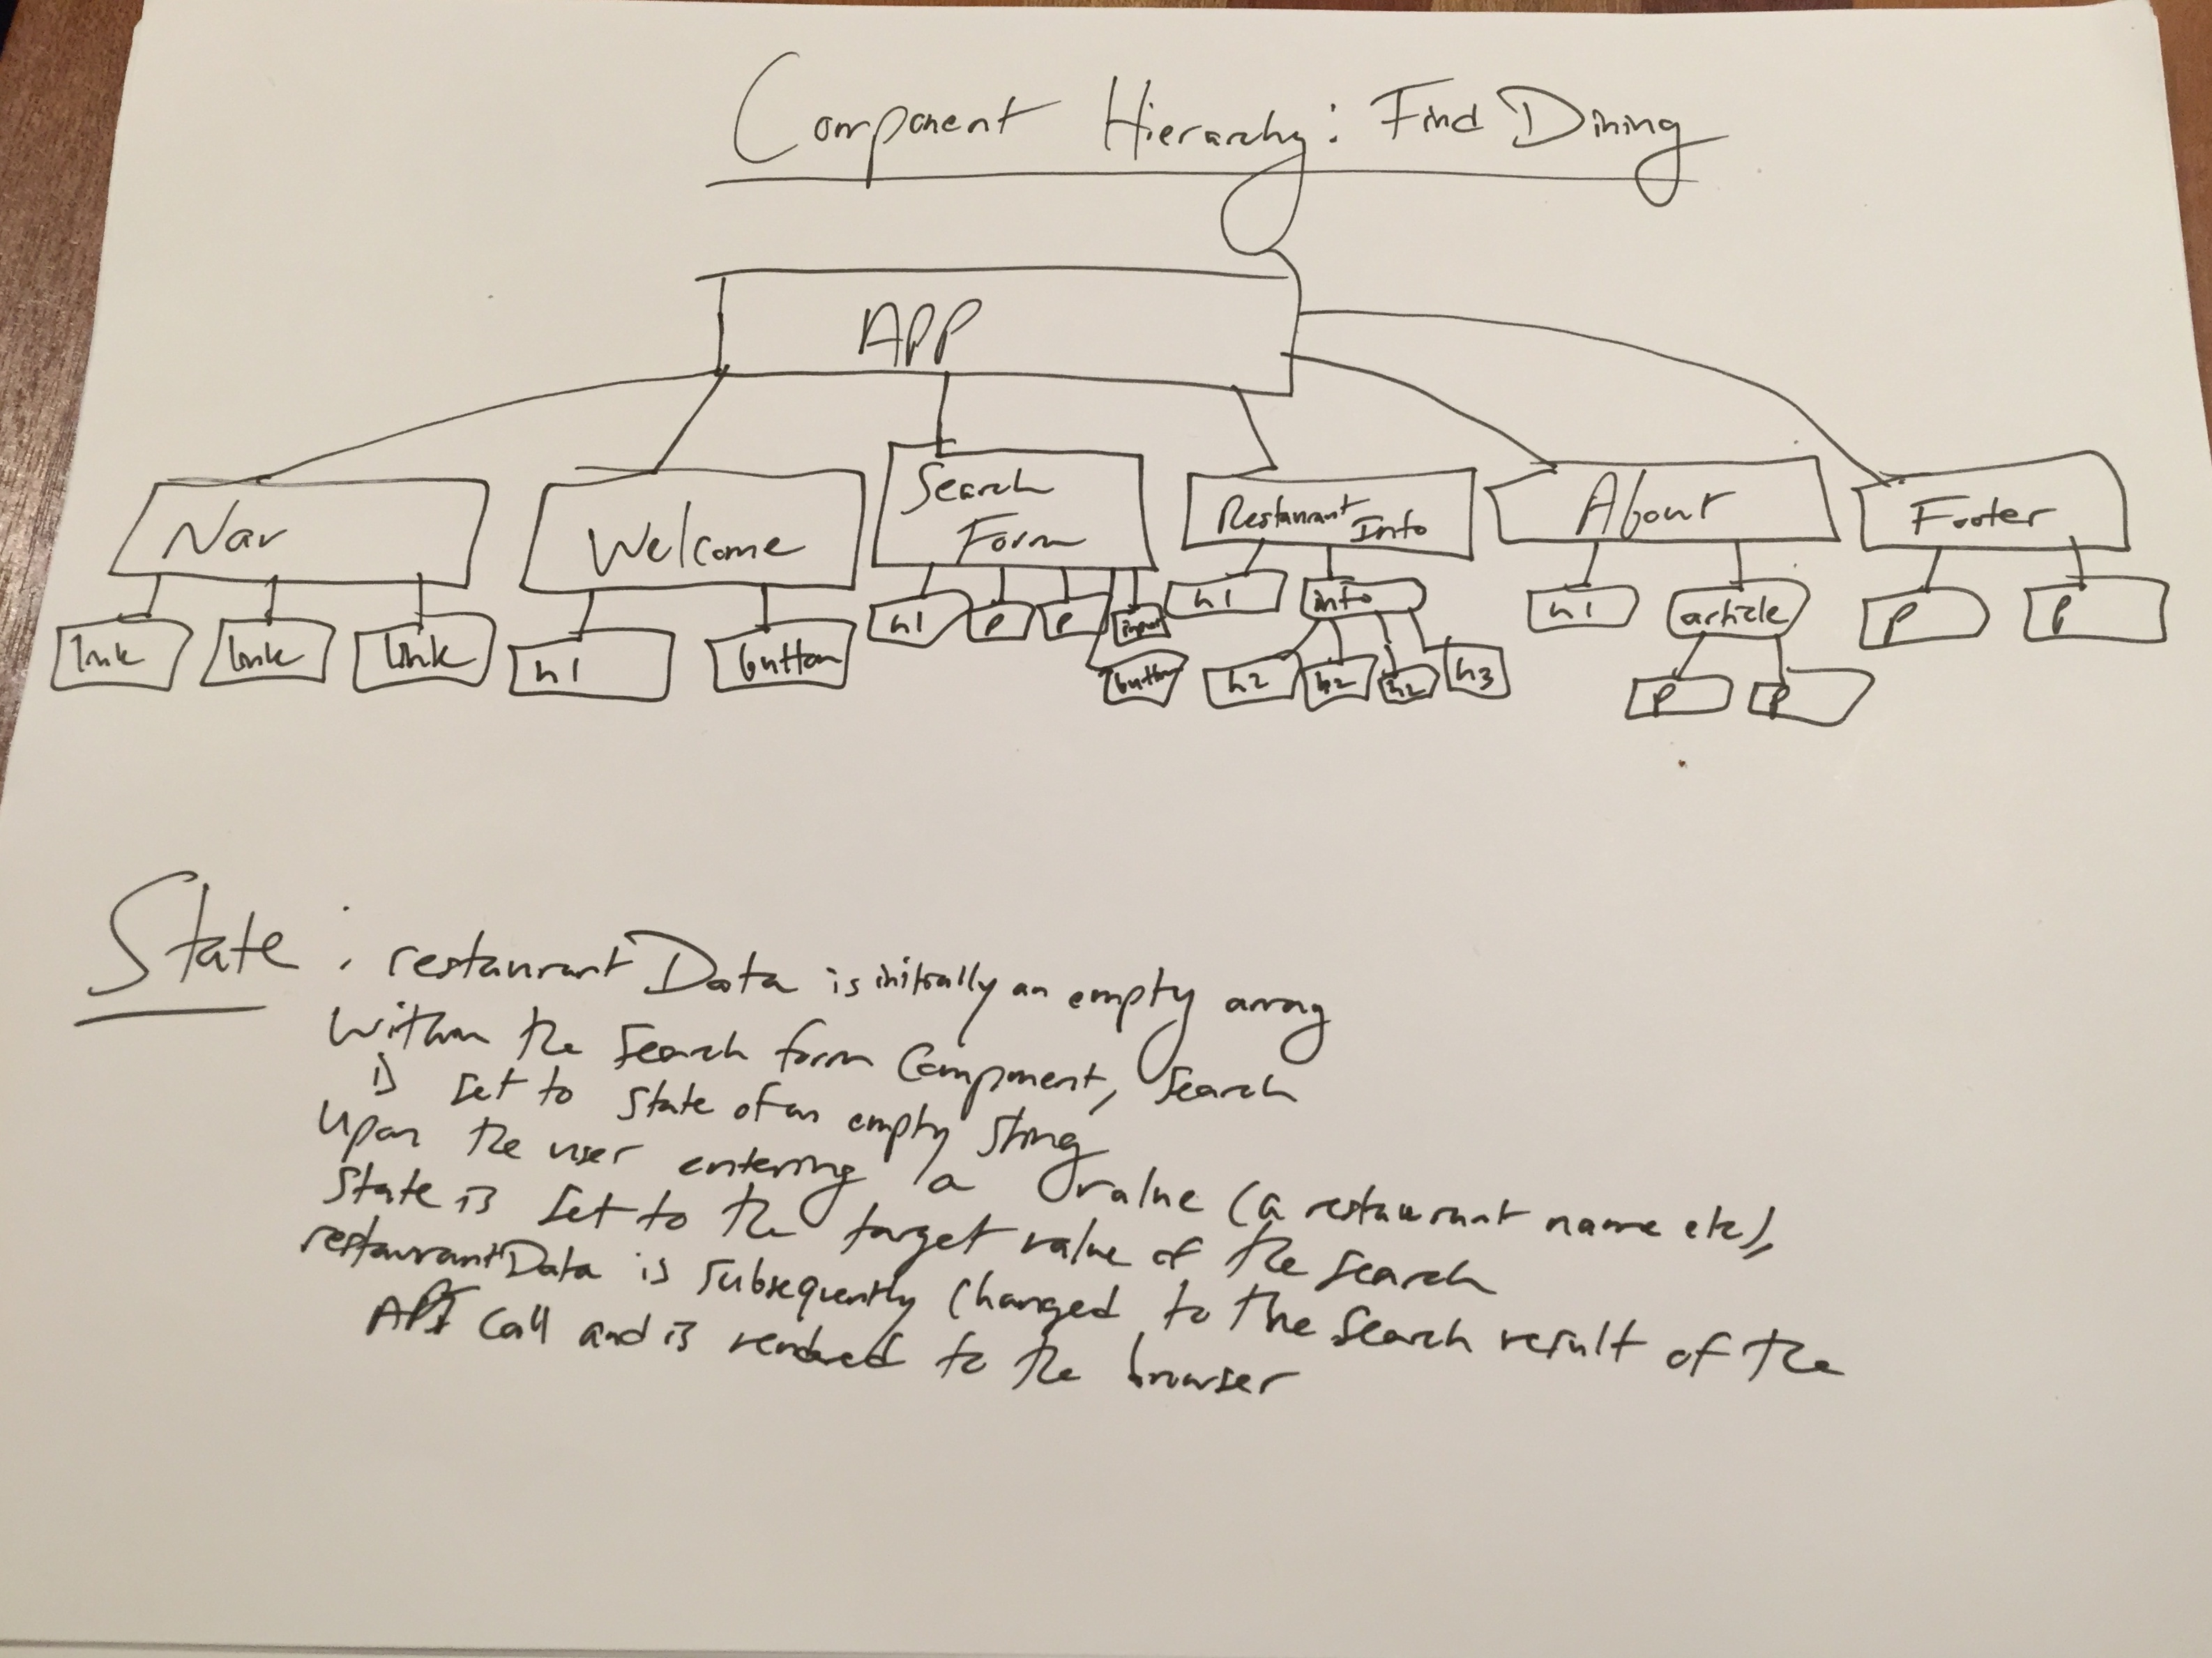 Component Hierarchy: Find Dining
APP
Nav
Welcome
Search
Form
Restaurant
Info
About
Footer
link
link
link
h1
button
h1
p
p
input
button
h1
info
h2
h2
h2
h3
h1
article
p
p
p
p
State: restaurantData is initially an empty array
Within the search form component, search
is set to state of an empty string
Upon the user entering a value (a restaurant name etc),
state is set to the target value of the search
restaurantData is subsequently changed to the search result of the
API call and is rendered to the browser